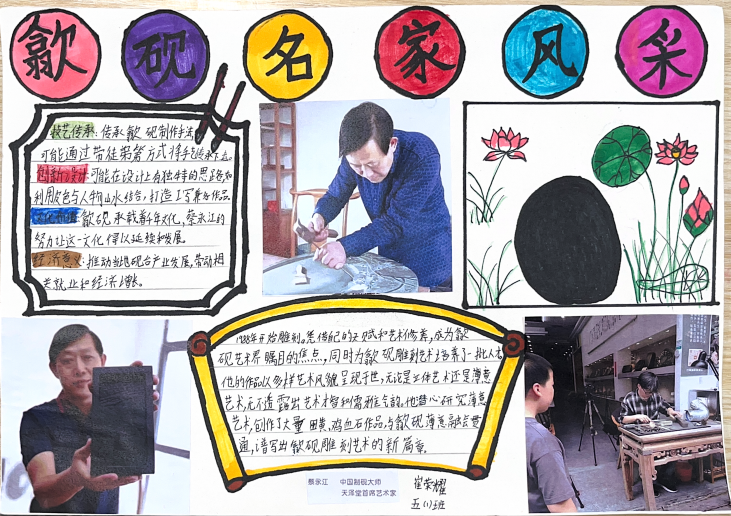 歙砚名家风采
技艺传承:传承歙砚制作手法
可能通过带徒弟等方式将手艺传承下去。
创新设计:可能在设计上有独特的思路如
利用皮色与人物山水结合,打造工写兼备作品。
文化价值:歙砚承载着千年文化,蔡永江的
努力让这一文化得以延续和发展。
经济意义:推动当地砚台产业发展,带动相
关就业和经济上涨。
年开始雕刻。凭借自己的天赋和艺术修养,成为歙
砚艺术界瞩目的焦点,同时为歙砚雕刻艺术培养了一批人才
他的作品以多样艺术风貌呈现于世,无论是立体艺术还是薄意
艺术,无不透露出艺术才智和儒雅气韵。他潜心研究薄意
艺术,创作了大量田黄、鸡血石作品,与歙砚薄意融会贯
通,谱写出歙砚雕刻艺术的新篇章。
蔡永江 中国制砚大师
天泽堂首席艺术家
崔荣耀
五(1)班